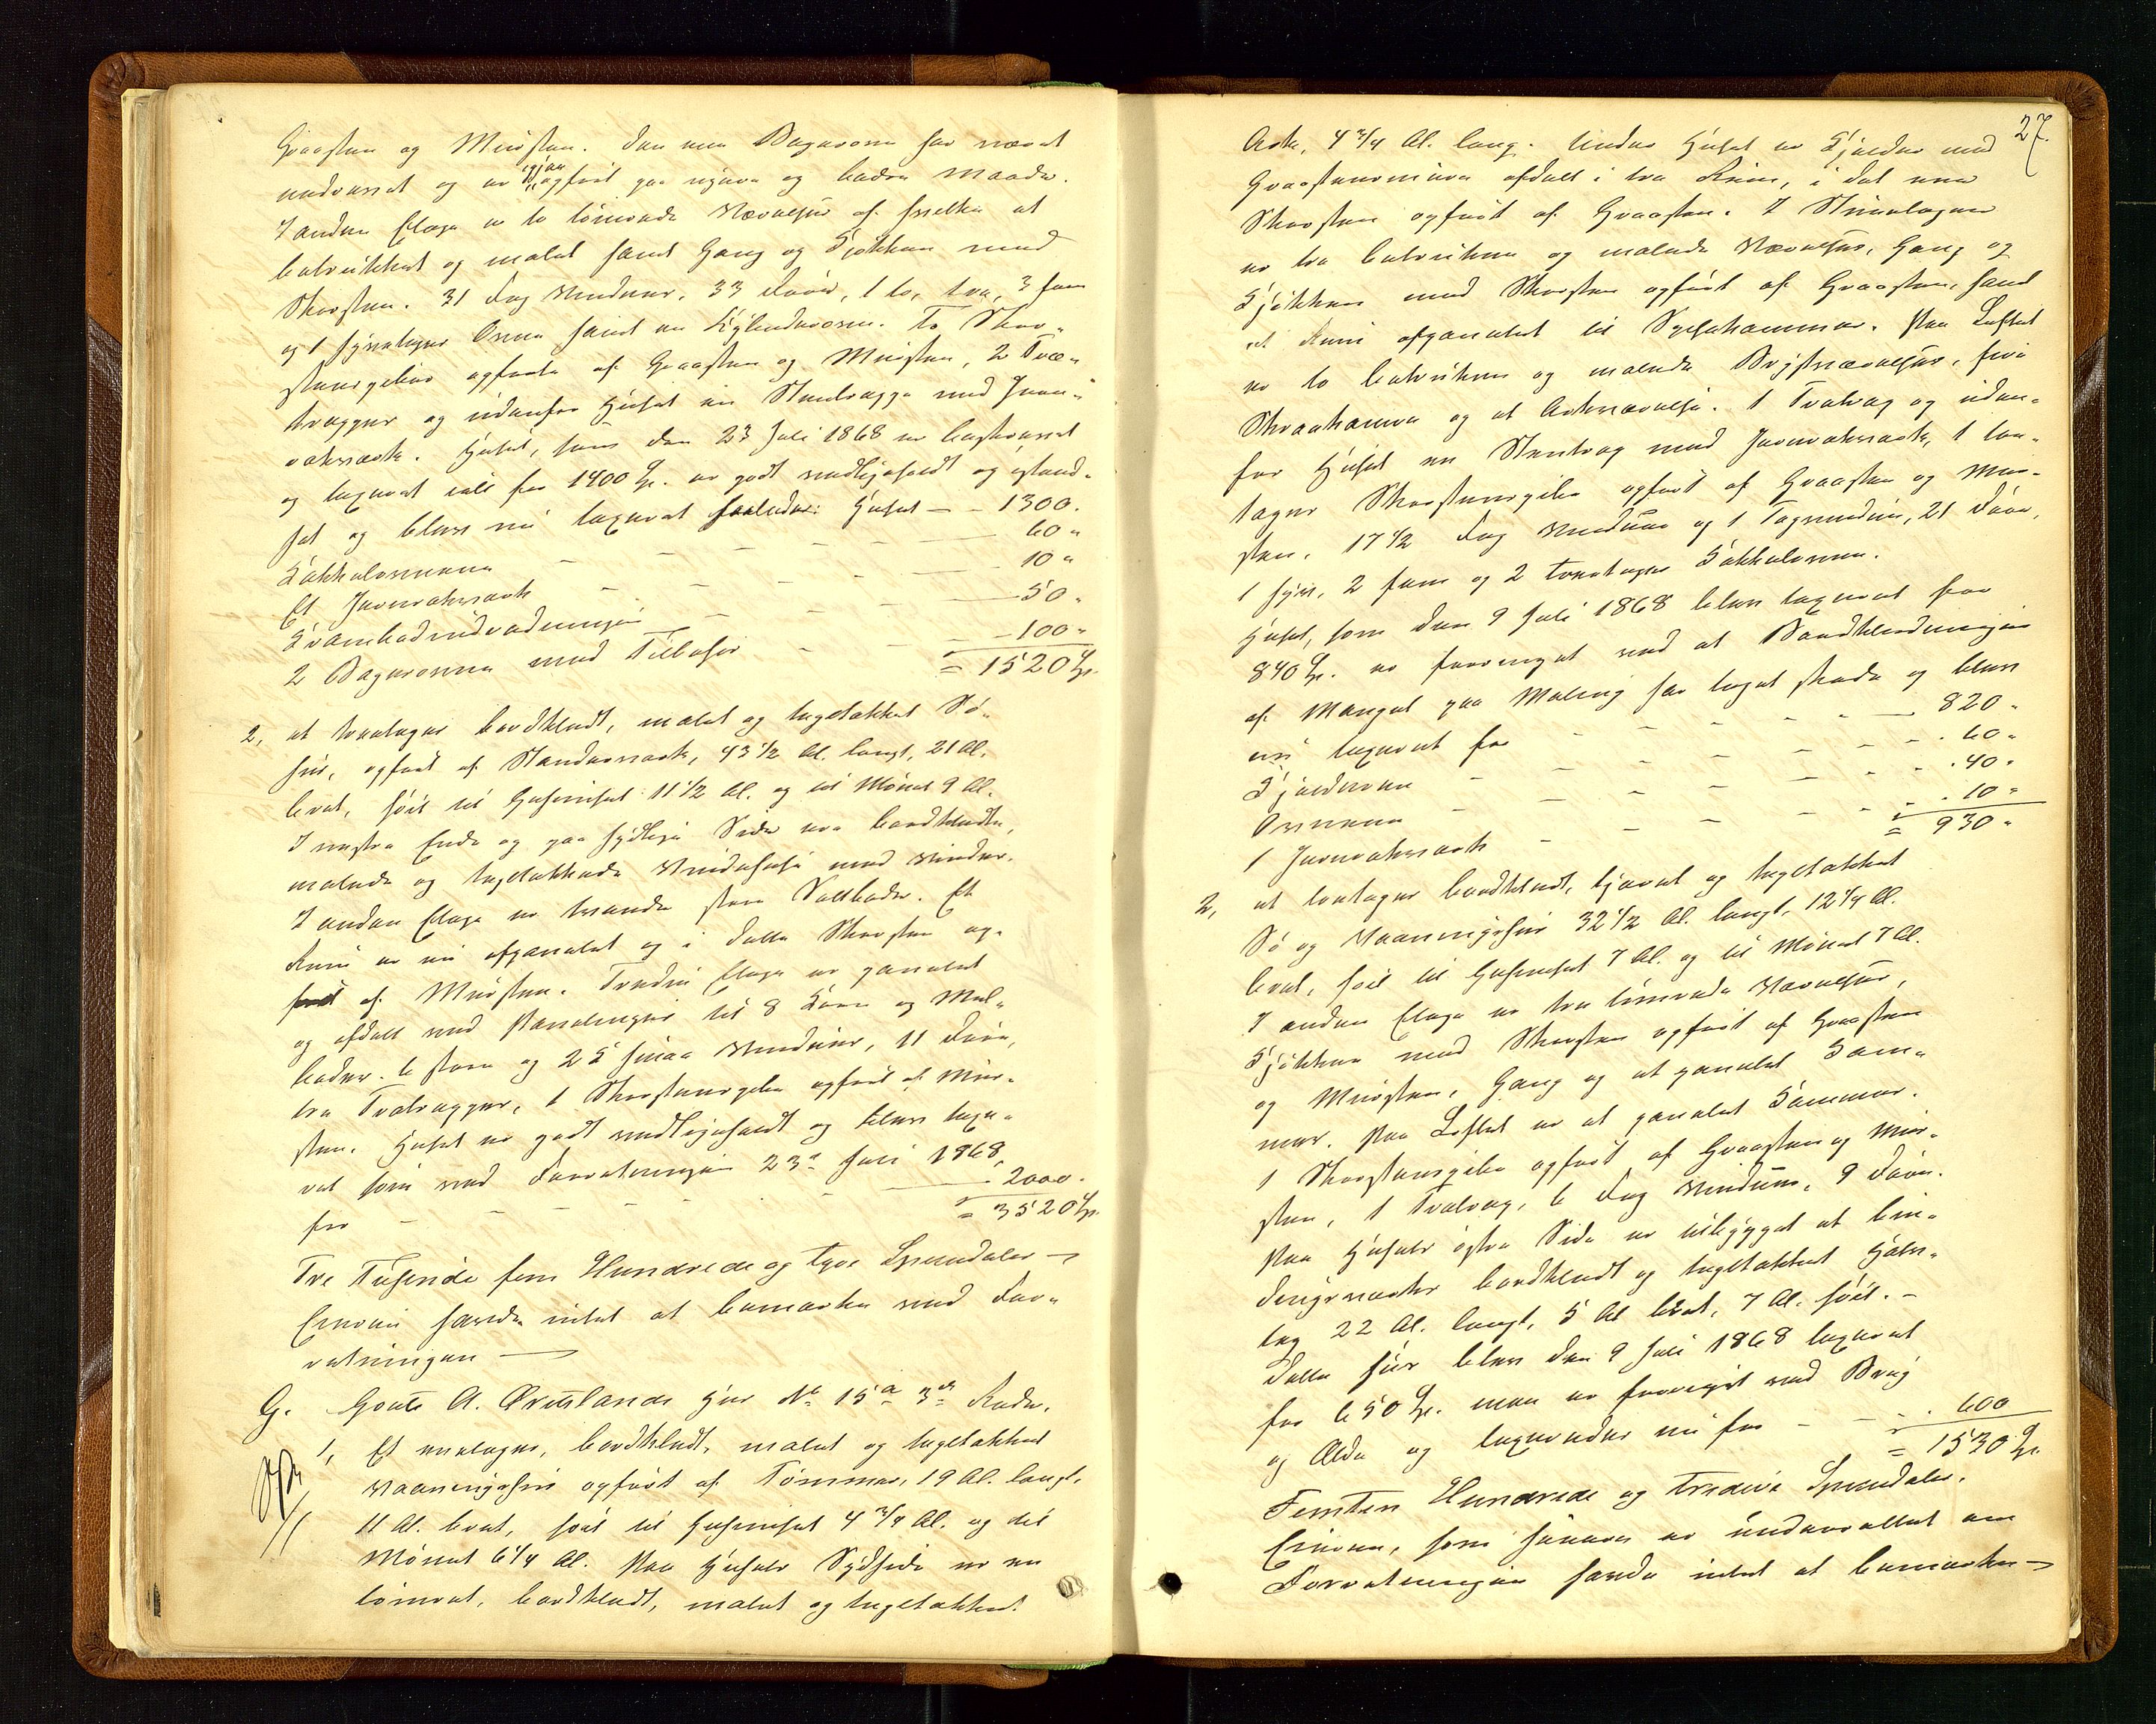 Graasten og Muursten. Den ene Bagerovn har været
nedrevet og er igjen opført paa nyere og bedre Maade.
I anden Etage er to tømrede Værelser af hvilke et
betrukket og malet samt Gang og Kjøkken med
Skorsten. 31 Fag Vinduer. 33 Døre, 1 to, tre, 3 fem
og 1 Ovne samt en Cylinderovn. To Skor-
stenspiber opførte af Graasten og Muursten, 2 Træ-
trapper og udenfor Huset en Stentrappe med Jern-
rækværk. Huset, som den 23 Juli 1868 er beskrevet
og taxeret til for 1400 Spd. er godt vedligeholdt og istand-
sat og blev nu taxeret saaledes: Huset – – 1300.
Kakkelovnene – – – – – 60 "
Et Jernrækværk – – – – 10 "
– – – 50 "
2 Bagerovne med Tilbehør – – 100 "
= 1520 Spd.
2, et treetages bordklædt, malet og tegltækket Sø-
huus, opført af Stenderværk, 43 1/2 Al. langt, 21 Al.
bredt, høit til Gesimset 11 1/2 Al. og til Mønet 9 Al.
I vestre Ende og paa sydlige Side ere bordklædte,
malede og tegltækkede Vindehuse med Vinder.
I anden Etage er tvende store Saltboder. Et
Rum er nu afpanelet og i dette Skorsten op-
ført af Muursten. Tredie Etage er panelet
og afdelt med Panelinger til 8 Korn og Mel-
boder. 6 store og 25 smaa Vinduer, 11 Døre,
tre Trætrapper, 1 Skorstenspibe opført af Muur-
sten. Huset er godt vedligeholdt og blev taxe-
ret som ved Forretningen 23de Juli 1868,
for – – – – 2000.
= 3520 Spd.
Tre Tusinde fem Hundrede og tyve Speciedaler –
Eieren havde intet at bemærke ved For-
retningen –
G. Goute A. Qvitslands Huus No 15a 3die Rode.
1, Et enetages, bordklædt, malet og tegltækket
Vaaningshuus opført af Tømmer, 19 Al. langt,
11 Al. bredt, høit til Gesimset 4 3/4 Al. og til
Mønet 6 1/4 Al. Paa Husets Sydside er en
tømret, bordklædt, malet og tegltækket
27.
Ark, 4 3/4 Al. lang. Under Huset er Kjelder med
Graastensmure afdelt i tre Rum, i det ene
Skorsten opført af Graasten. I Stueetagen
er tre betrukne og malede Værelser, Gang og
Kjøkken med Skorsten opført af Graasten, samt
et Rum afpanelet til Spisekammer. Paa Loftet
er to betrukne og malede Kvistværelser, fire
Skraakamre og et Arkværelse. 1 Trætrap og uden-
for Huset en Stentrap med Jernrækværk, 1 toe-
tages Skorstenspibe opført af Graasten og Muur-
sten. 17 1/2 Fag Vinduer og 1 Tagvindue, 21 Døre,
1 fire, 2 fem og 2 treetages Kakkelovne.
Huset, som den 9 Juli 1868 blev taxeret for
840 Spd. er forringet ved at Bordklædningen
af Mangel paa Maling har taget skade og blev
nu taxeret for – – – – 820 "
Kjelderen – – – – 60 "
Ovnene – – – – 40 "
1 Jernrækværk – – – 10 "
= 930 "
2, et toetages bordklædt, tjæret og tegltækket
Sø og Vaaningshuus 32 1/2 Al. langt, 12 1/4 Al.
bredt, høit til Gesimset 7 Al. og til Mønet 7 Al.
I anden Etage er tre tømrede Værelser,
Kjøkken med Skorsten opført af Graasten
og Muursten, Gang og et panelet Kam-
mer. Paa Loftet er et panelet Kammer.
1 Skorstenspibe opført af Graasten og Muur-
sten, 1 Trætrap, 6 Fag Vinduer, 9 Døre.
Paa Husets østre Side er tilbygget et bin-
dingsværks bordklædt og tegltækket Halv-
tag 22 Al. langt, 5 Al bredt, 7 Al. høit. –
Dette Huus blev den 9 Juli 1868 taxeret
for 650 Spd. men er forringet ved Brug
og Ælde og taxeredes nu for – – 600
= 1530 Spd.
Femten Hundrede og tredive Speciedaler.
Eieren, som var underrettet om
Forretningen havde intet at bemærke –